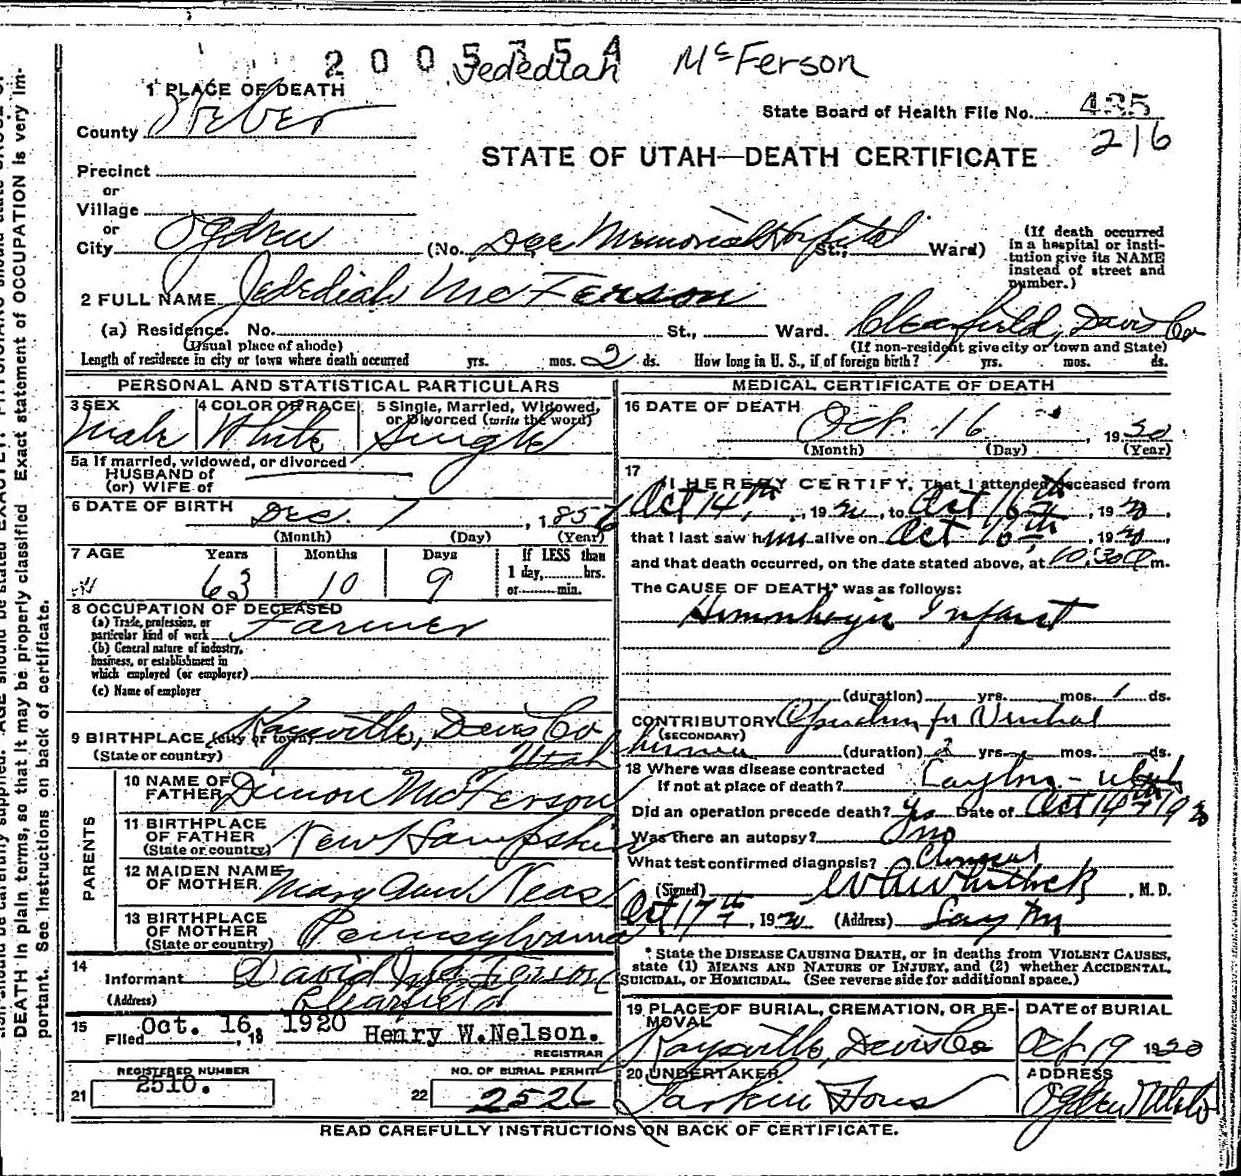 2005754
Jedediah McFerson
1 PLACE OF DEATH
County Weber
State Board of Health File No. 435
216
STATE OF UTAH—DEATH CERTIFICATE
Precinct
or
Village
or
City Ogden (No. Dee Memorial Hospital St., Ward)
(If death occurred in a hospital or institution give its NAME instead of street and number.)
2 FULL NAME Jedediah McFerson
(a) Residence. No. St., Ward. Clearfield, Davis Co
(Usual place of abode) (If non-resident give city or town and State)
Length of residence in city or town where death occurred yrs. mos. 2 ds. How long in U. S., if of foreign birth? yrs. mos. ds.
PERSONAL AND STATISTICAL PARTICULARS
3 SEX 4 COLOR OR RACE 5 Single, Married, Widowed, or Divorced (write the word)
Male White Single
5a If married, widowed, or divorced
HUSBAND of
(or) WIFE of
6 DATE OF BIRTH Dec. 7, 1856
(Month) (Day) (Year)
7 AGE Years Months Days If LESS than
63 10 9 1 day, hrs.
or min.
8 OCCUPATION OF DECEASED
(a) Trade, profession, or
particular kind of work Farmer
(b) General nature of industry,
business, or establishment in
which employed (or employer)
(c) Name of employer
9 BIRTHPLACE (city or town) Kaysville, Davis Co
(State or country) Utah
PARENTS
10 NAME OF FATHER Dimon McFerson
11 BIRTHPLACE OF FATHER New Hampshire
(State or country)
12 MAIDEN NAME OF MOTHER Mary Ann Neas
13 BIRTHPLACE OF MOTHER Pennsylvania
(State or country)
14 Informant David McFerson
(Address) Clearfield
15 Filed Oct. 16, 1920 Henry W.Nelson.
REGISTRAR
REGISTERED NUMBER NO. OF BURIAL PERMIT
21 2510. 22 2526
MEDICAL CERTIFICATE OF DEATH
16 DATE OF DEATH Oct. 16, 1920
(Month) (Day) (Year)
17 I HEREBY CERTIFY, That I attended deceased from
Oct 14th, 1920, to Oct 16th, 1920,
that I last saw him alive on Oct 16th, 1920,
and that death occurred, on the date stated above, at 10:30 m.
The CAUSE OF DEATH* was as follows:
Hemorrhagic Infarct
(duration) yrs. mos. 1 ds.
CONTRIBUTORY Operation for Ventral
(SECONDARY)
hernia (duration) 2 yrs. mos. ds.
18 Where was disease contracted
If not at place of death? Layton - Utah
Did an operation precede death? Yes Date of Oct 14th 1920
Was there an autopsy? no
What test confirmed diagnosis? Clinical
(Signed) Whitlock, M. D.
Oct 17th, 1920 (Address) Layton
* State the DISEASE CAUSING DEATH, or in deaths from VIOLENT CAUSES,
state (1) MEANS AND NATURE OF INJURY, and (2) whether ACCIDENTAL,
SUICIDAL, or HOMICIDAL. (See reverse side for additional space.)
19 PLACE OF BURIAL, CREMATION, OR REMOVAL DATE of BURIAL
Kaysville, Davis Co Oct 19 1920
20 UNDERTAKER ADDRESS
Larkin Sons Ogden Utah
READ CAREFULLY INSTRUCTIONS ON BACK OF CERTIFICATE.
DEATH in plain terms, so that it may be properly classified. Exact statement of OCCUPATION is very im-
portant. See instructions on back of certificate.